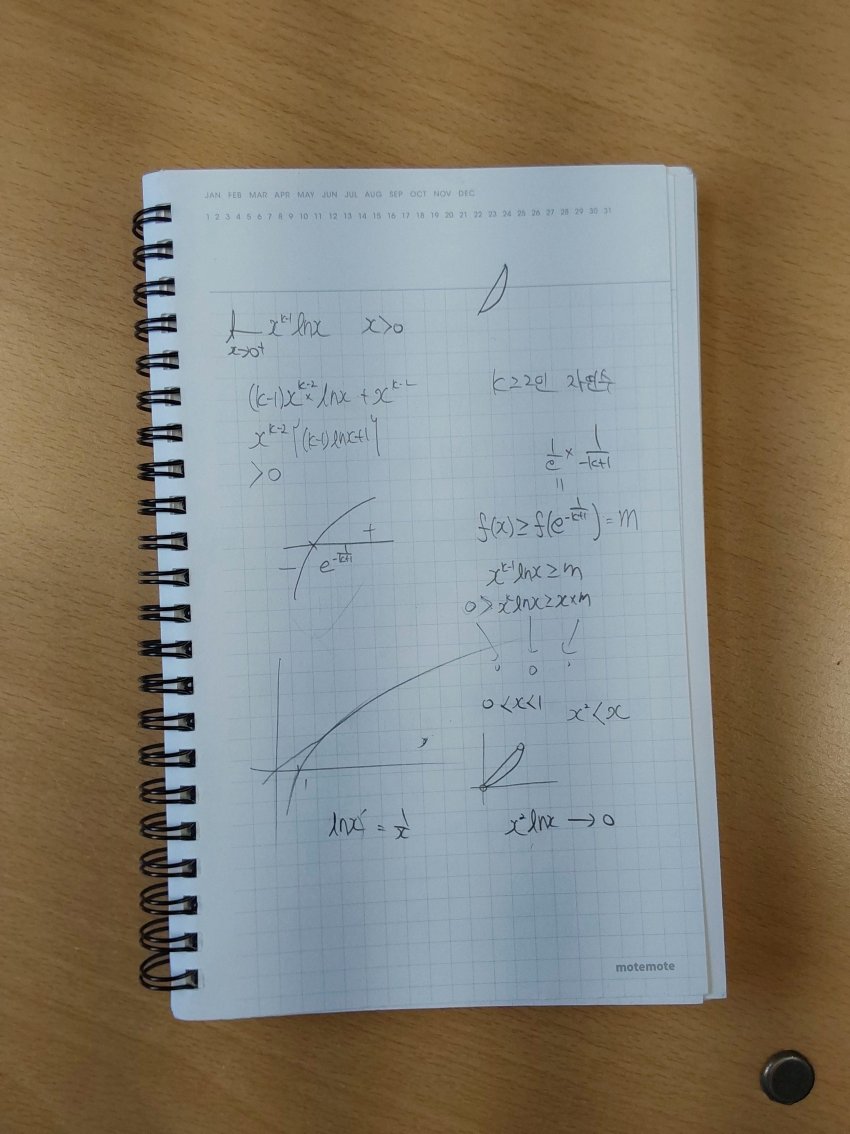 JAN FEB MAR APR MAY JUN JUL AUG SEP OCT NOV DEC
1 2 3 4 5 6 7 8 9 10 11 12 13 14 15 16 17 18 19 20 21 22 23 24 25 26 27 28 29 30 31
lim x^{k-1} ln x   x>0
x→0+
(k-1)x^{k-2} × ln x + x^{k-2}
x^{k-2}{(k-1)ln x+1}
>0
+
− e^{-\frac{1}{k+1}}
1
ln x' = \frac{1}{x}
k≥2인 자연수
\frac{1}{e} × \frac{1}{-k+1}
=
f(x) ≥ f(e^{-\frac{1}{k+1}}) = m
x^{k-1} ln x ≥ m
0 > x^k ln x ≥ x×m
0 0
0<x<1 x²<x
x² ln x → 0
motemote